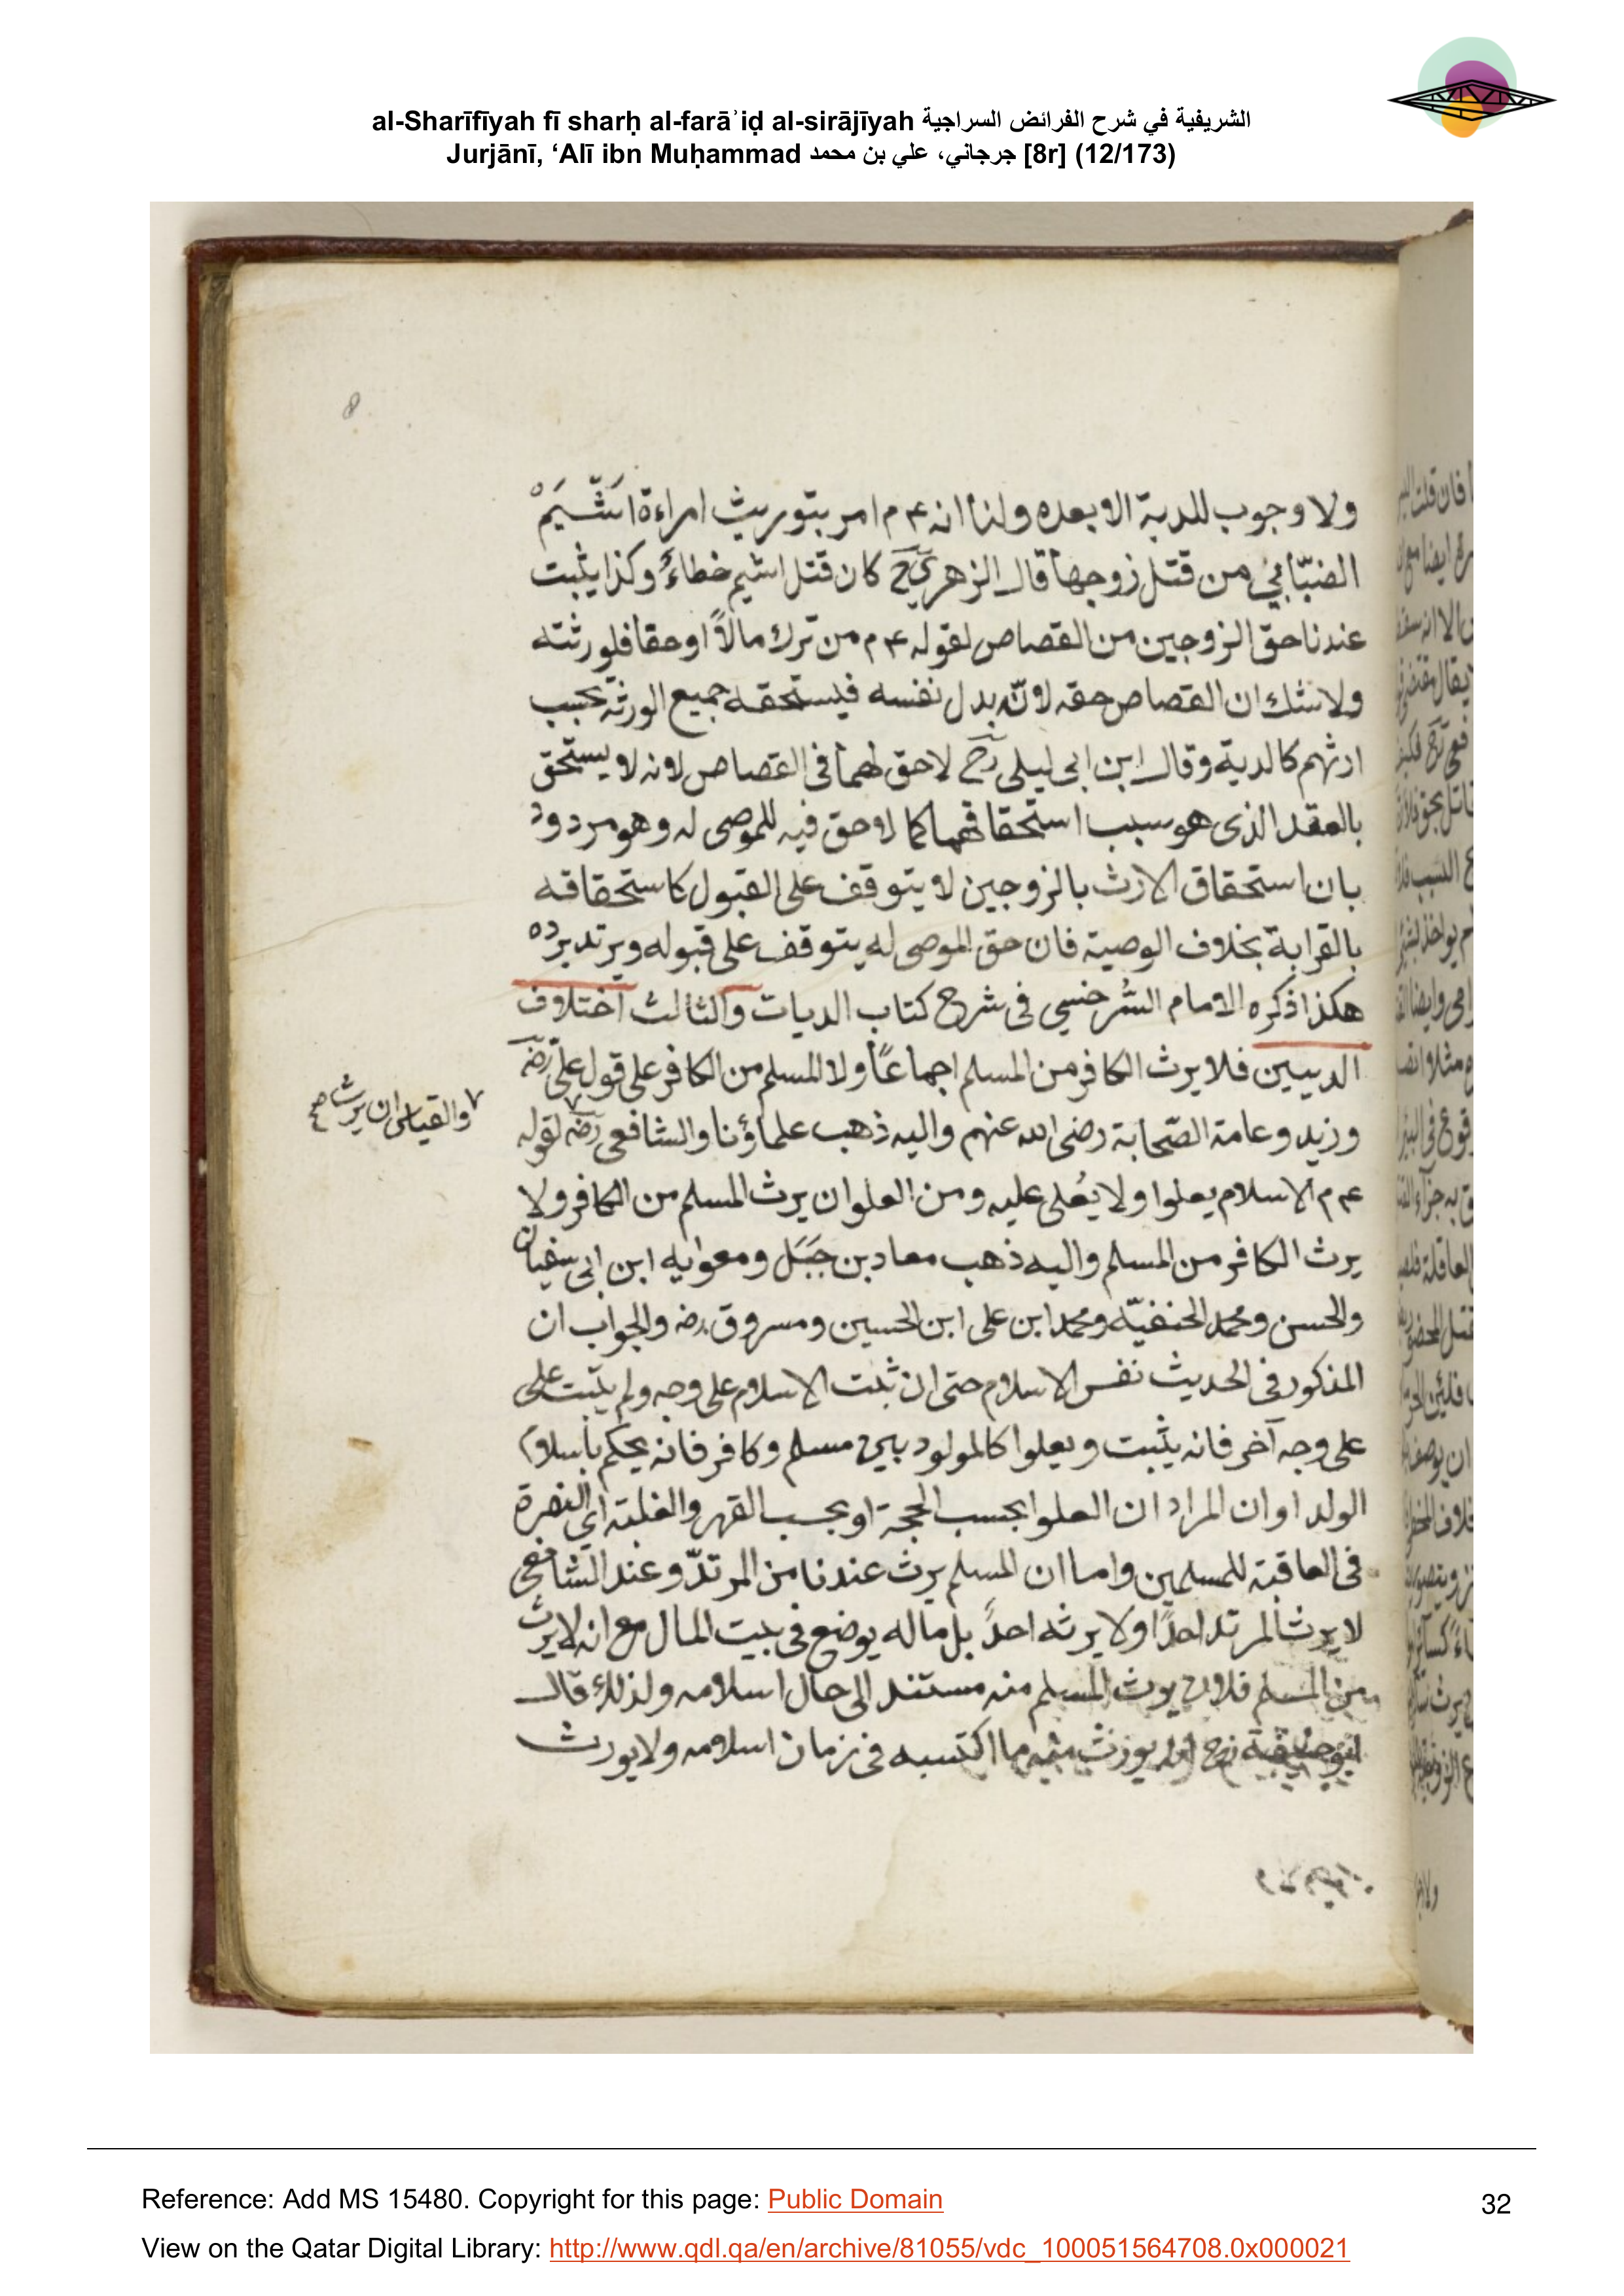 al-Sharīfīyah fī sharḥ al-farāʾiḍ al-sirājīyah الشريفية في شرح الفرائض السراجية
Jurjānī, ‘Alī ibn Muḥammad جرجاني، علي بن محمد [8r] (12/173)
8
ولا وجوب للدية الا بعده ولنا انه ع م امر بتوريث امراءة اَشْيَمْ
الضبّابي من قتل زوجها قال الزهري رح كان قتل اشيم خطاءً وكذا يثبت
عندنا حق الزوجين من القصاص لقوله ع م من ترك مالاً او حقا فلورثته
ولا شك ان القصاص حقه لانّه بدل نفسه فيستحقه جميع الورثة بحسب
ارثهم كالدية وقال ابن ابى ليلى رح لا حق لهما فى القصاص لانه لا يستحق
بالعقد الذى هو سبب استحقاقهما كما لا حق فيه للموصى له وهو مردود
بان استحقاق الارث بالزوجين لا يتوقف على القبول كاستحقاقه
بالقرابة بخلاف الوصية فان حق الموصى له يتوقف على قبوله ويرتد برده
هكذا ذكره الامام السُرخسي فى شرح كتاب الديات والثالث اختلاف
الدينين فلا يرث الكافر من المسلم اجماعاً ولا المسلم من الكافر على قول على رضه
وزيد وعامة الصّحابة رضى الله عنهم واليه ذهب علماؤنا والشافعى رضه لقوله
٧ والقياس ان يرث صح
ع م الاسلام يعلوا ولا يُعلى عليه ومن العلو ان يرث المسلم من الكافر ولا
يرث الكافر من المسلم واليه ذهب معاد بن جَبَل ومعوٰيه ابن ابى سفيان
والحسن ومحمد الحنفيّه ومحمد ابن على ابن الحسين ومسروق رضه والجواب ان
المذكور فى الحديث نفس الاسلام حتى ان ثبت الاسلام على وجه ولم يثبت على
على وجه آخر فانه يثبت ويعلوا كالمولود بين مسلم وكافر فانه يحكم باسلام
الولد او ان المراد ان العلوا بحسب الحجة او بحسب القهر والغلبة اي النصرة
فى العاقبة للمسلمين واما ان المسلم يرث عندنا من المرتدّ وعند الشافعى
لا يرث المرتد احدًا ولا يرثه احدً بل ماله يوضع فى بيت المال مع انه لا يرث
من المسلم فلان يورث المسلم منه مستند الى حال اسلامه ولذلك قال
ابو حنيفة رح انه يورث منه ما اكتسبه فى زمان اسلامه ولا يورث
Reference: Add MS 15480. Copyright for this page: Public Domain
32
View on the Qatar Digital Library: http://www.qdl.qa/en/archive/81055/vdc_100051564708.0x000021